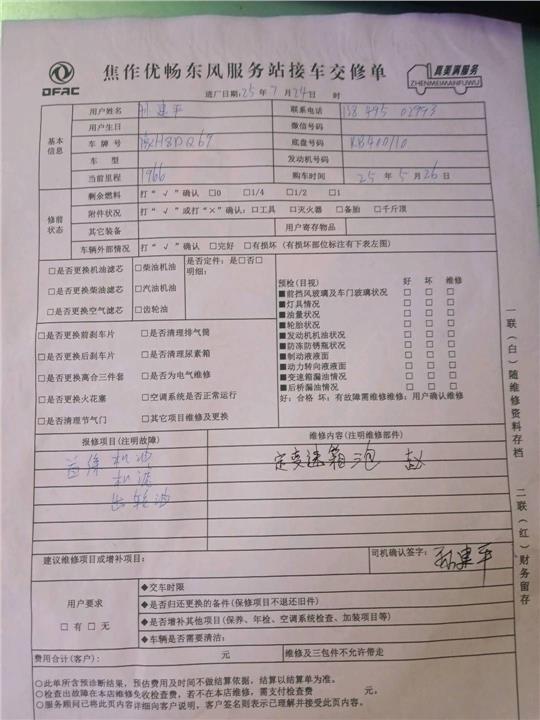 DFAC
焦作优畅东风服务站接车交修单
真美满服务
ZHENMEIMANFUWU
进厂日期：25年7月24日 时
基本信息
用户姓名 孙建平 联系电话
用户生日 微信号码
车牌号 底盘号码 KB400110
车型 发动机号码
当前里程 1966 购车时间 25年5月26日
修前状态
剩余燃料 打“√”确认 □0 □1/4 □1/2 □1
附件状况 打“√”或打“×”确认：□工具 □灭火器 □备胎 □千斤顶
其它装备 用户寄存物品
车辆外部情况 打“√”确认 □完好 □有损坏（有损坏部位标注有下表左图）
□是否更换机油滤芯 □柴油机油
□是否更换柴油滤芯 □汽油机油
□是否更换空气滤芯 □齿轮油
是否定件：是□否□
明细：
□是否更换前刹车片 □是否清理排气筒
□是否更换后刹车片 □是否清理尿素箱
□是否更换离合三件套 □是否为电气维修
□是否更换火花塞 □空调系统是否正常运行
□是否清理节气门 □其它项目维修及更换
预检（目视） 好 坏 维修
■前挡风玻璃及车门玻璃状况 □ □ □
■灯具情况 □ □ □
■油量状况 □ □ □
■轮胎状况 □ □ □
■发动机机油状况 □ □ □
■防冻防锈瓶状况 □ □ □
■制动液液面 □ □ □
■动力转向液液面 □ □ □
■变速箱漏油情况 □ □ □
■后桥漏油情况 □ □ □
好：合格 坏：有故障需维修维修：用户确认维修
报修项目（注明故障） 维修内容（注明维修部件）
首保 机油
机滤
齿轮油
定变速箱三包 赵
建议维修项目或增补项目：
司机确认签字：孙建平
用户要求
□有□无
◆交车时限
◆是否归还更换的备件（保修项目不退还旧件）
◆是否增补其他项目（保养、年检、空调系统检查、加装项目等）
◆车辆是否需要清洁：
费用合计（客户）： 元 维修及三包件不允许带走
○此单所含预诊断结果，预估费用及时间不做结算依据，结算以结算单为准。
○检查出故障在本店维修免收检查费，若不在本店维修，需支付检查费 元。
○服务顾问已将此页内容详细向客户说明，客户签名则表示已理解并接受此页内容。
一联（白）随维修资料存档
二联（红）财务留存